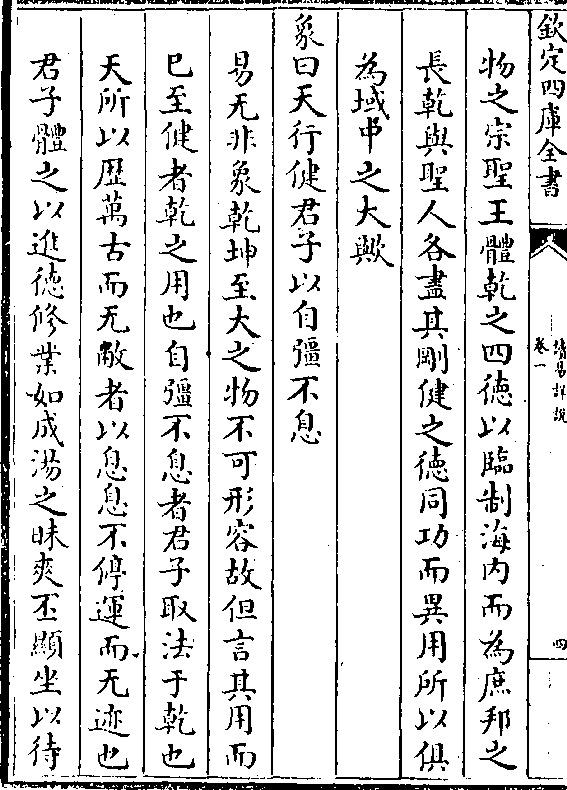 欽定四庫全書
讀易詳說
卷一
四
物之宗聖王體乾之四徳以臨制海内而為庶邦之
長乾與聖人各盡其剛健之徳同功而異用所以俱
為域中之大歟
象曰天行健君子以自彊不息
易无非象乾坤至大之物不可形容故但言其用而
已至健者乾之用也自彊不息者君子取法于乾也
天所以歴萬古而无敝者以息息不停運而无迹也
君子體之以進徳修業如成湯之昧爽丕顯坐以待